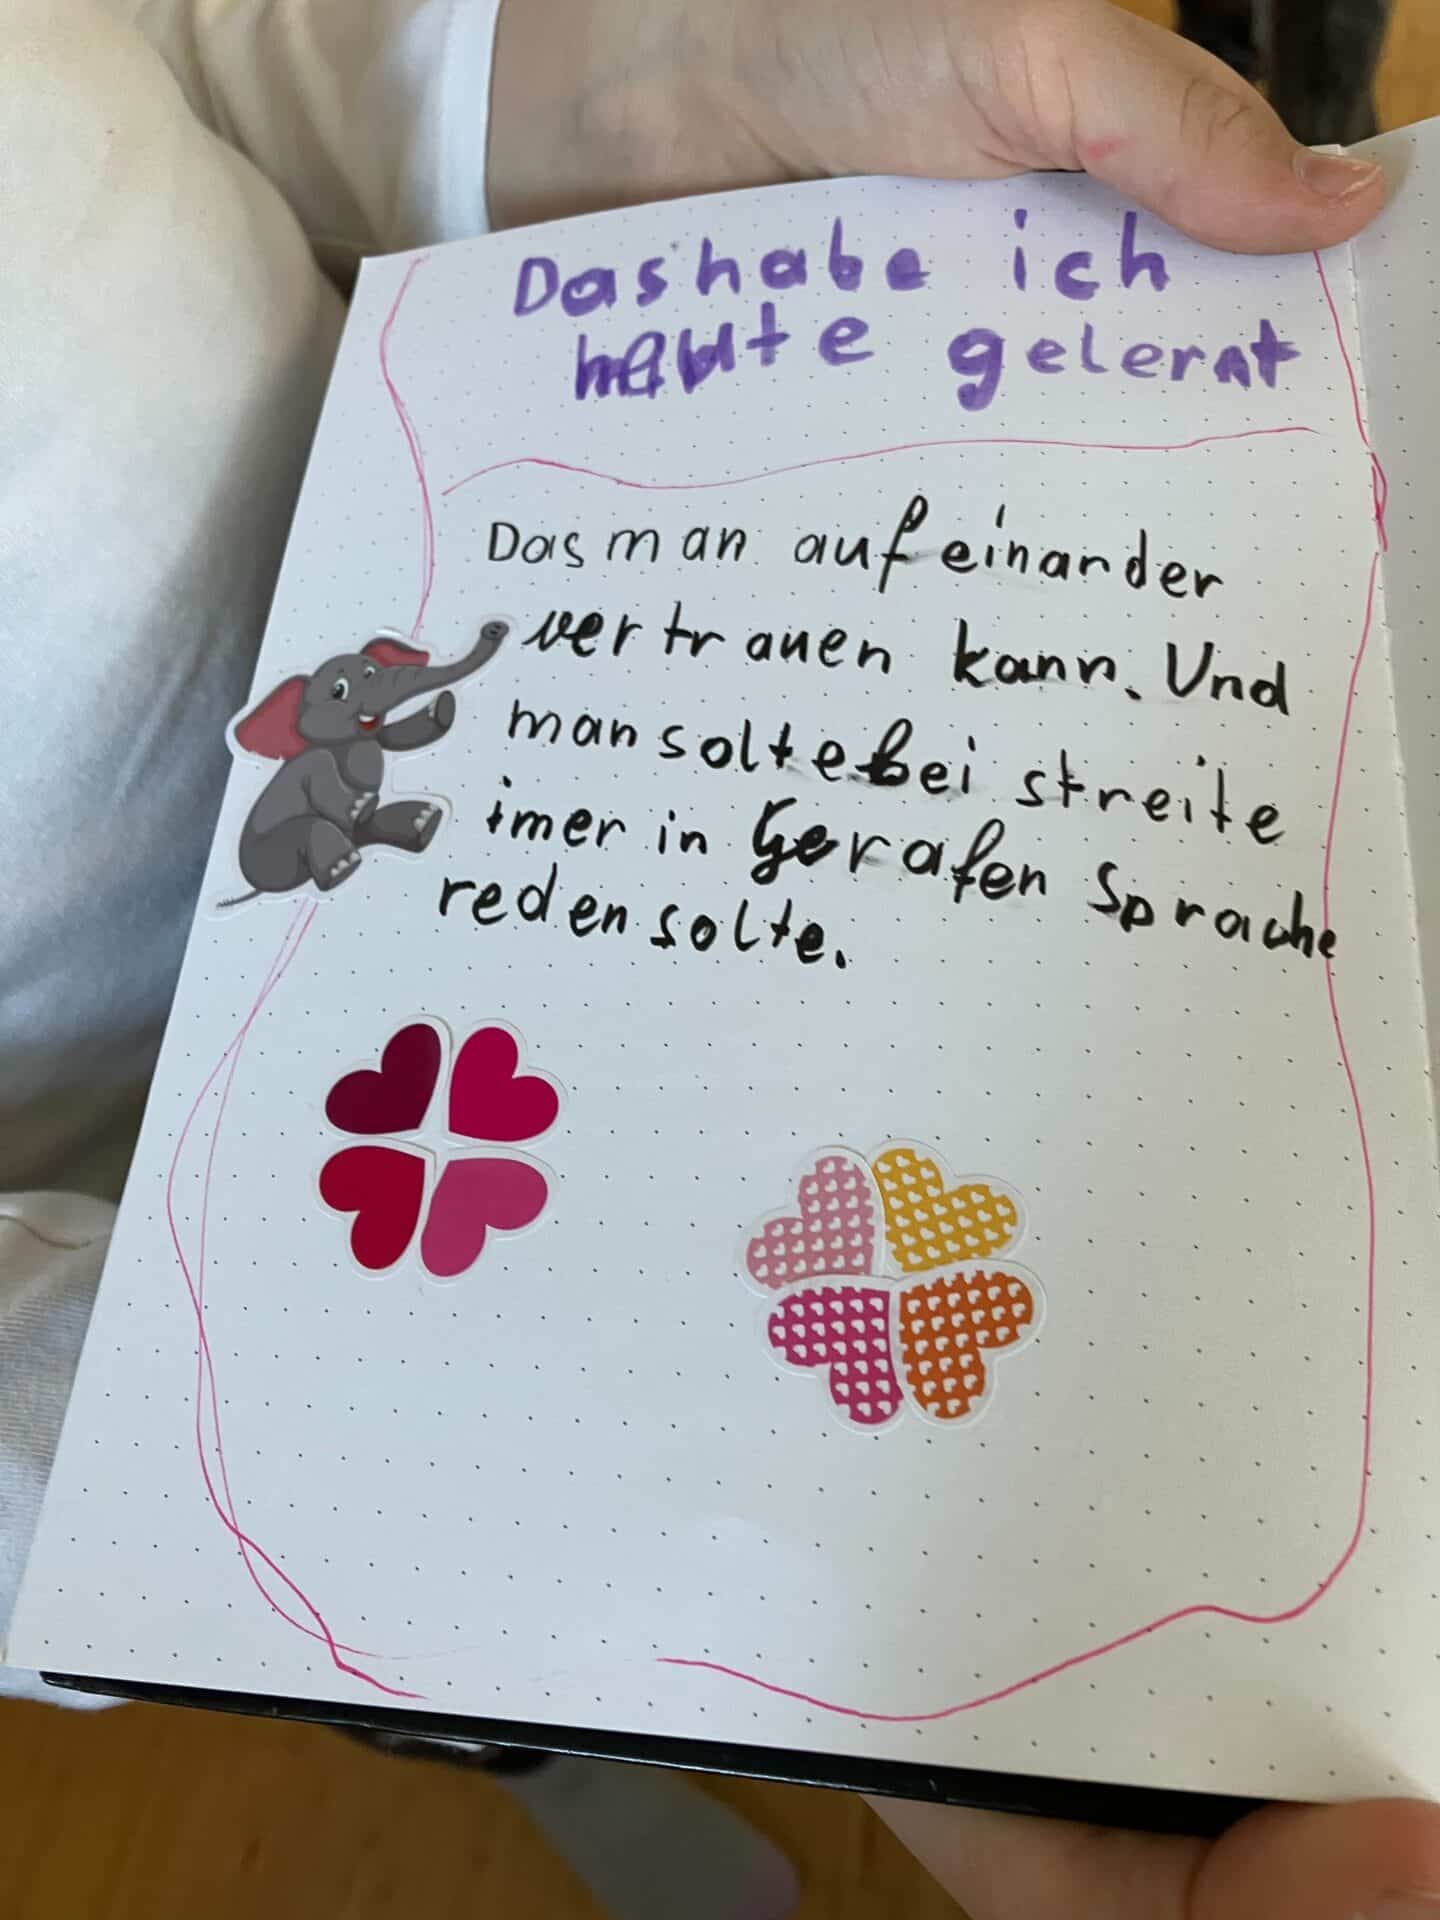 Das habe ich
heute gelernt
Das man aufeinander
vertrauen kann. Und
man solte bei streite
imer in Gerafen Sprache
reden solte.